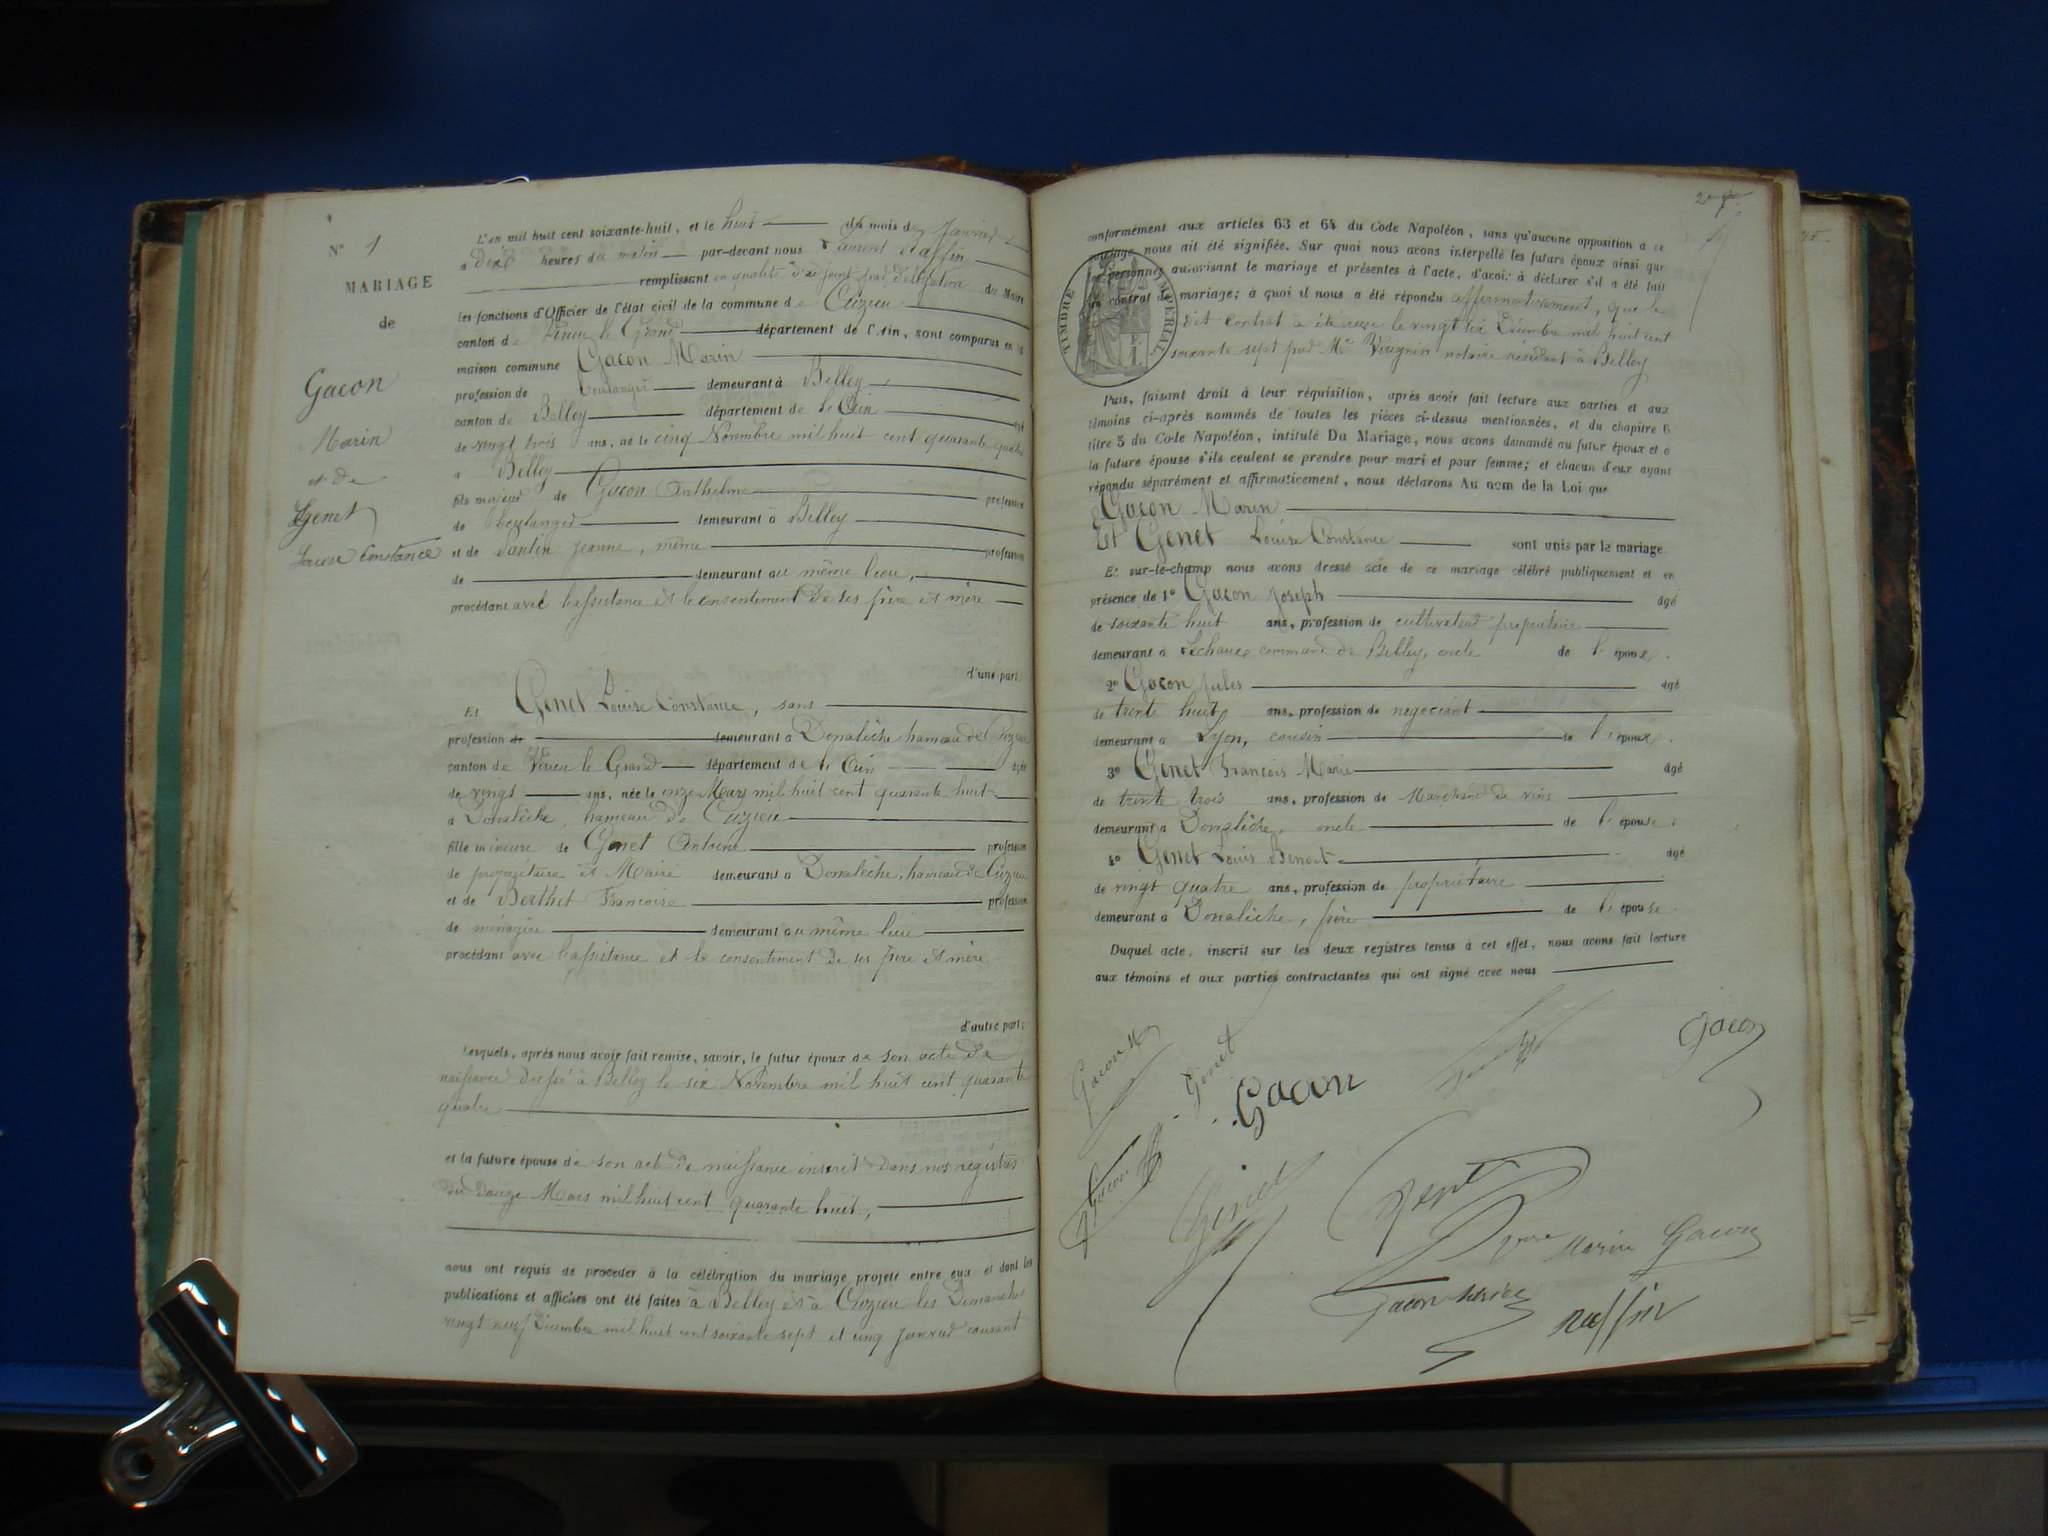 N° 1
MARIAGE
de
Gacon
Marin
et de
Genet
Louise Constance
L'an mil huit cent soixante-huit, et le huit du mois de Janvier
à dix heures du matin par-devant nous Laurent Raffin
remplissant en qualité d'adjoint par délégation du Maire
les fonctions d'Officier de l'état civil de la commune de Cuzieu
canton de Virieu le Grand département de l'Ain, sont comparus en la
maison commune Gacon Marin
profession de boulanger demeurant à Belley
canton de Belley département de l'Ain âgé
de vingt trois ans, né le cinq Novembre mil huit cent quarante quatre
à Belley
fils majeur de Gacon Anthelme profession
de boulanger demeurant à Belley
et de Pantin Jeanne, même profession
de demeurant au même lieu,
procédant avec l'assistance et le consentement de ses père et mère
d'une part;
Et Genet Louise Constance, sans
profession de demeurant à Donalèche hameau de Cuzieu
canton de Virieu le Grand département de l'Ain âgée
de vingt ans, née le onze Mars mil huit cent quarante huit
à Donalèche, hameau de Cuzieu
fille mineure de Genet Antoine profession
de propriétaire et Maire demeurant à Donalèche, hameau de Cuzieu
et de Berthet Françoise profession
de ménagère demeurant au même lieu
procédant avec l'assistance et le consentement de ses père et mère
d'autre part;
Lesquels, après nous avoir fait remise, savoir, le futur époux de son acte de
naissance dressé à Belley le six Novembre mil huit cent quarante
quatre
et la future épouse de son acte de naissance inscrit dans nos registres
du douze Mars mil huit cent quarante huit,
nous ont requis de procéder à la célébration du mariage projeté entre eux et dont les
publications et affiches ont été faites à Belley et à Cuzieu les Dimanches
vingt neuf Décembre mil huit cent soixante sept et cinq Janvier courant
conformément aux articles 63 et 64 du Code Napoléon, sans qu'aucune opposition à ce
mariage nous ait été signifiée. Sur quoi nous avons interpellé les futurs époux ainsi que
les personnes autorisant le mariage et présentes à l'acte, d'avoir à déclarer s'il a été fait
un contrat de mariage; à quoi il nous a été répondu affirmativement, que le
dit contrat a été reçu le vingt six Décembre mil huit cent
soixante sept par Me notaire résidant à Belley
TIMBRE IMPERIAL
Puis, faisant droit à leur réquisition, après avoir fait lecture aux parties et aux
témoins ci-après nommés de toutes les pièces ci-dessus mentionnées, et du chapitre 6
titre 5 du Code Napoléon, intitulé Du Mariage, nous avons demandé au futur époux et à
la future épouse s'ils veulent se prendre pour mari et pour femme; et chacun d'eux ayant
répondu séparément et affirmativement, nous déclarons Au nom de la Loi que
Gacon Marin
Et Genet Louise Constance sont unis par le mariage
Et sur-le-champ nous avons dressé acte de ce mariage célébré publiquement et en
présence de 1° Gacon Joseph âgé
de soixante huit ans, profession de cultivateur propriétaire
demeurant à commune de Belley, oncle de l'époux.
2° Gacon Jules âgé
de trente huit ans, profession de négociant
demeurant à Lyon, cousin de l'époux.
3° Genet François Marie âgé
de trente trois ans, profession de Marchand de vins
demeurant à Donalèche, oncle de l'épouse.
4° Genet Louis Benoit âgé
de vingt quatre ans, profession de propriétaire
demeurant à Donalèche, frère de l'épouse.
Duquel acte, inscrit sur les deux registres tenus à cet effet, nous avons fait lecture
aux témoins et aux parties contractantes qui ont signé avec nous
Gacon
Genet
Gacon
Gacon
Gacon
Genet
Marin Gacon
Gacon
Raffin